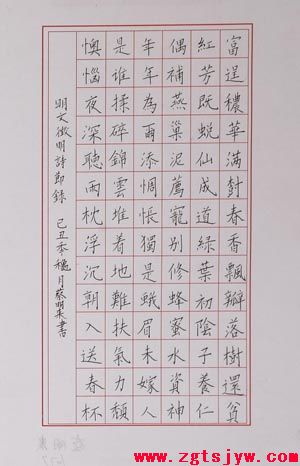 富逞穠華滿樹春香飄瓣落樹還貧
紅芳既蛻仙成道綠葉初陰子養仁
偶補燕巢泥薦寵別修蜂蜜水資神
年年為雨添惆悵獨是蛾眉未嫁人
是誰揉碎錦雲堆着地難扶氣力頹
懊惱夜深聽雨枕浮沉朝入送春杯
明文徵明詩節錄 己丑季穐月蔡明書
www.zgtsjyw.com